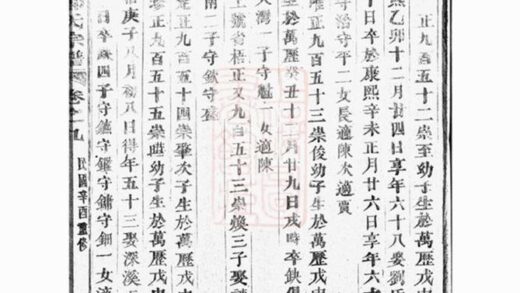 正九百五十二崇至幼子生於萬歷戊申
熙乙卯十二月廿四日享年六十八娶劉氏
十日卒於康熙辛未正月廿六日享年六十
子守治守平二女長適陳次適賈
正九百五十三崇俊幼子生於萬歷戊申
於萬歷癸丑十二月廿九日戌時卒缺
大灣二子守魁一女適陳
上號省梧正又九百五十三崇煥三子娶
南二子守欽守盈
正九百五十四崇肇次子生於萬歷戊申
正九百五十五崇 幼子生於萬歷戊申
庚子八月初八日得年五十三娶深溪
四子守鎮守鑵守鏽守鈿一女適
氏宗譜 卷之九 民國辛酉重修